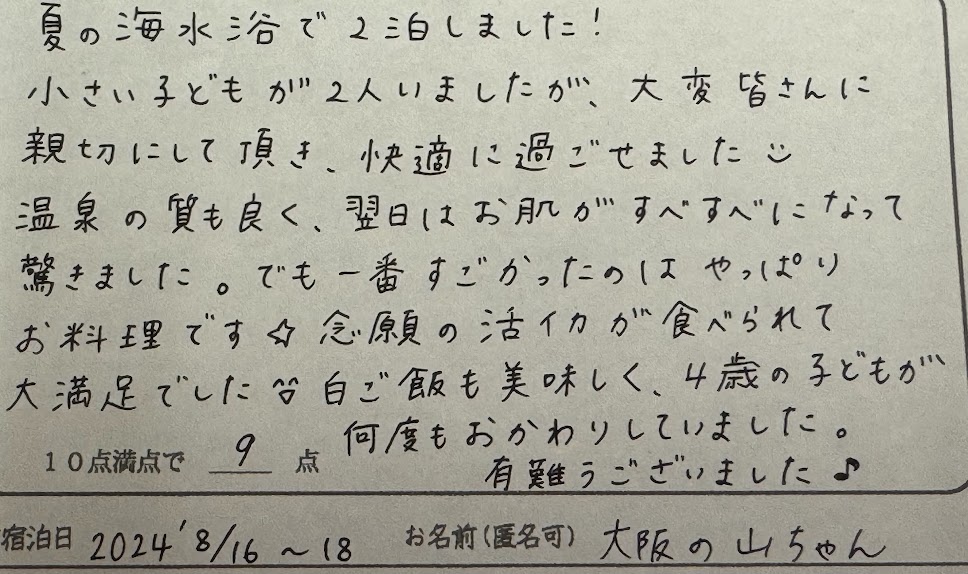 夏の海水浴で2泊しました!
小さい子どもが2人いましたが、大変皆さんに
親切にして頂き、快適に過ごせました☺
温泉の質も良く、翌日はお肌がすべすべになって
驚きました。でも一番すごかったのはやっぱり
お料理です☆念願の活イカが食べられて
大満足でした 白ご飯も美味しく、4歳の子どもが
何度もおかわりしていました。
10点満点で 9 点
有難うございました♪
宿泊日 2024'8/16~18 お名前(匿名可) 大阪の山ちゃん